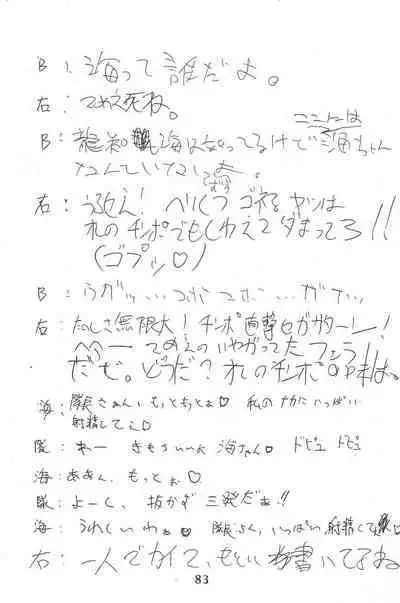 B：海って誰だよ。
右：てめえ死ね。
B：龍知 海は知ってるけどここには海ちゃん
なんていない(はず)よ。
右：うるせえ！へりくつゴネるヤツは
オレのチンポでもくわえてダまってろ！！
(ゴプッ♡)
B：ウガッ…コポコポ…ガァ…
右：たのしさ無限大！チンポ直撃セガサターン！
へへー てめえのいやがってたフェラ！
だぜ。どうだ？オレのチンポの味は。
海：隊長さぁんもっともっとぉ♡ 私のナカにいっぱい
射精してぇ♡
隊：わー きもちいいよ 海ちゃん♡ ドピュ ドピュ
海：ああん、もっとぉ♡
隊：よーし、抜かず三発だぁ!!
海：うれしいわぁ♡ 隊長さん、いっぱい射精して♡
右：一人でカイて、もとい 書いてるね
83